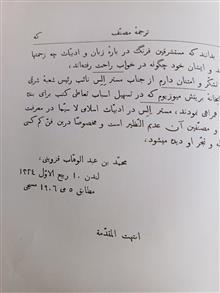 ترجمهٔ مصنّف
که
بدانند که مستشرقین فرنگ در بارهٔ زبان و ادبیّات چه زحمتها
و ایشان خود چگونه در خواب راحت رفته‌اند،
تشکّر و امتنان دارم از جناب مستر الِس نائب رئیس شعبهٔ شرقی
بریتش میوزیوم که در تسهیل اسباب تعاطی کتب برای بنده
فراهی نمودند، مستر الِس در ادبیّات اسلامی لا سیّما در معرفت
و مصنّفین آن عدیم النّظیر است و مخصوصا درین فنّ کم کسی
و تبحّر او دیده میشود،
محمّد بن عبد الوهّاب قزوینی،
لندن ۱۰ ربیع الاوّل ۱۳۲٤
مطابق ۵ می ۱۹۰٦ مسیحی
انتهت المقدّمة